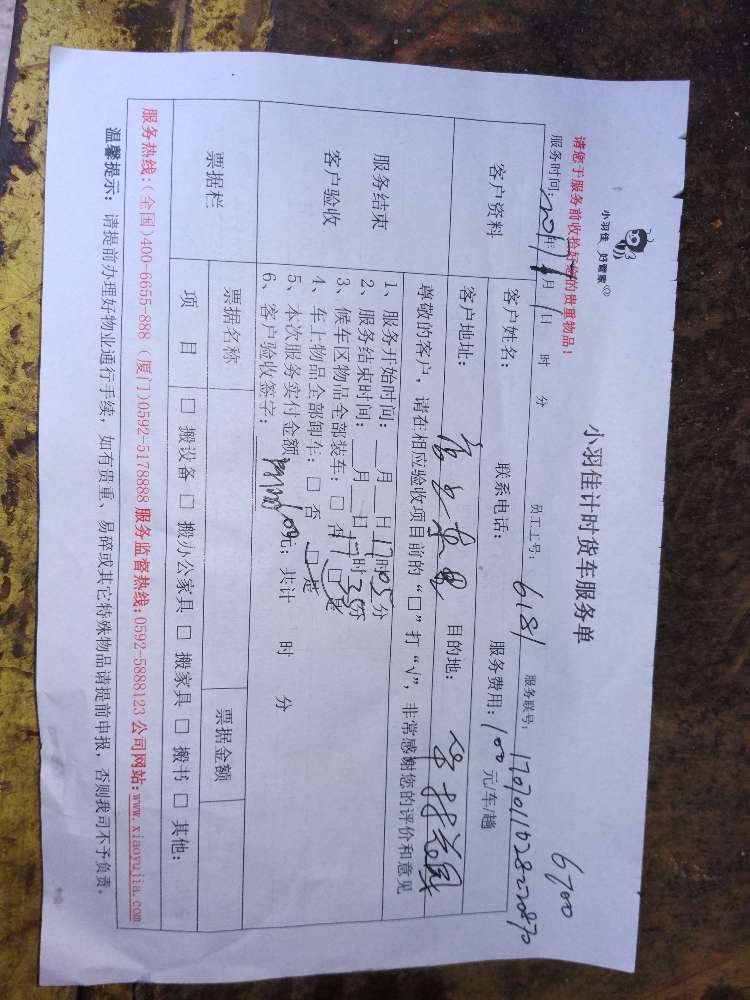 小羽佳 好管家
小羽佳计时货车服务单
6700
请您于服务前收拾好您的贵重物品！
服务时间：2017年7月1日 时 分 员工工号：6181 服务联号：
客户资料
客户姓名： 联系电话： 服务费用：100元/车/趟
客户地址： 目的地：
服务结束
客户验收
尊敬的客户，请在相应验收项目前的“□”打“√”，非常感谢您的评价和意见
1、服务开始时间：__月__日17时05分
2、服务结束时间：__月__日17时35分
3、候车区物品全部装车：□ 否 □ 是
4、车上物品全部卸车：□ 否 □ 是
5、本次服务实付金额 100元；共计 时 分
6、客户验收签字：
票据栏
票据名称 票据金额
项 目 □ 搬设备 □ 搬办公家具 □ 搬家具 □ 搬书 □ 其他：
服务热线：（全国）400-6655-888（厦门）0592-5178888 服务监督热线：0592-5888123 公司网站：www.xiaoyujia.com
温馨提示：请提前办理好物业通行手续，如有贵重、易碎或其它特殊物品请提前申报，否则我司不予负责。